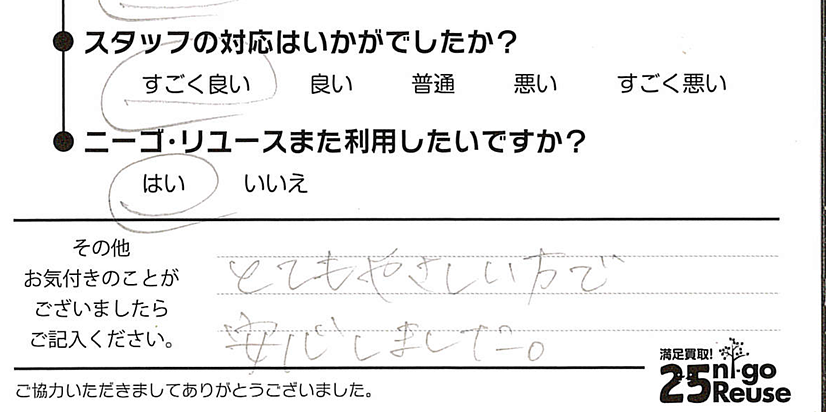 スタッフの対応はいかがでしたか？
すごく良い 良い 普通 悪い すごく悪い
ニーゴ・リユースまた利用したいですか？
はい いいえ
その他
お気付きのことが
ございましたら
ご記入ください。
とてもやさしい方で
安心しました。
ご協力いただきましてありがとうございました。
満足買取!
25 ni-go
Reuse